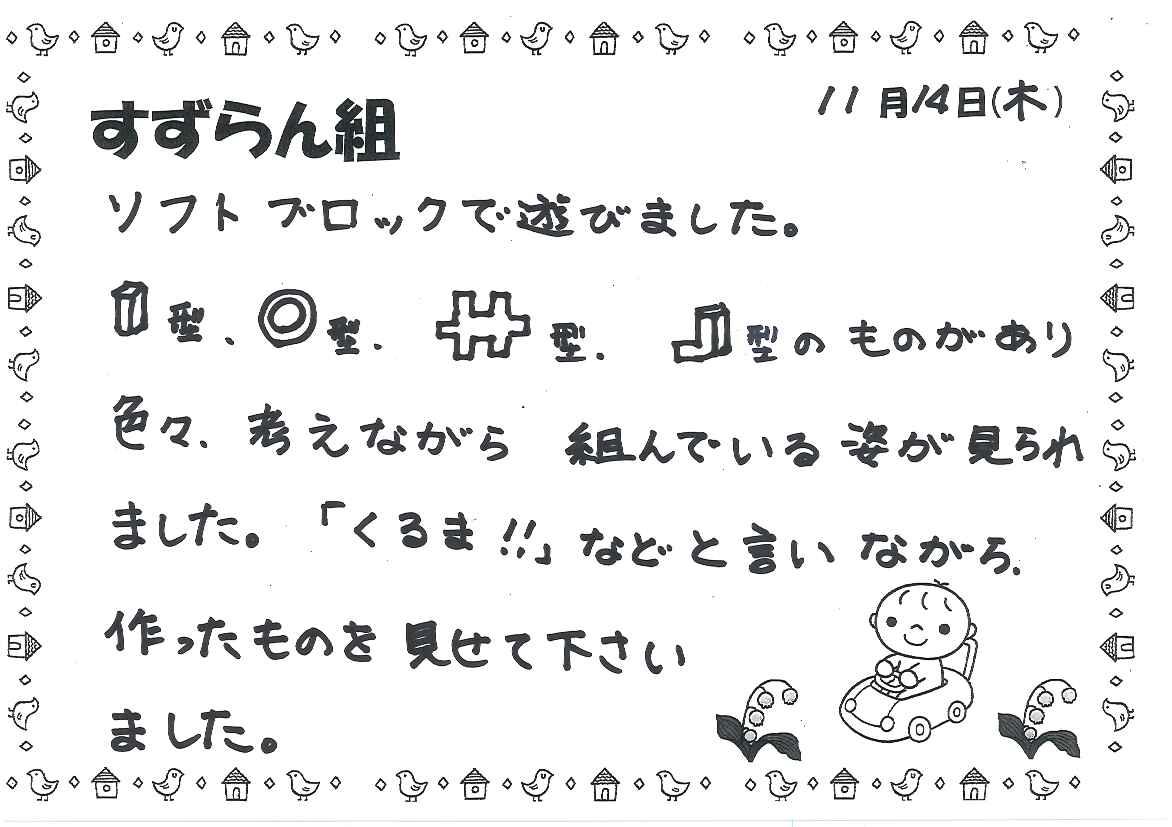 11月14日(木)
すずらん組
ソフトブロックで遊びました。
型、型、型、型のものがあり
色々、考えながら 組んでいる姿が見られ
ました。「くるま!!」などと言いながら、
作ったものを見せて下さい
ました。